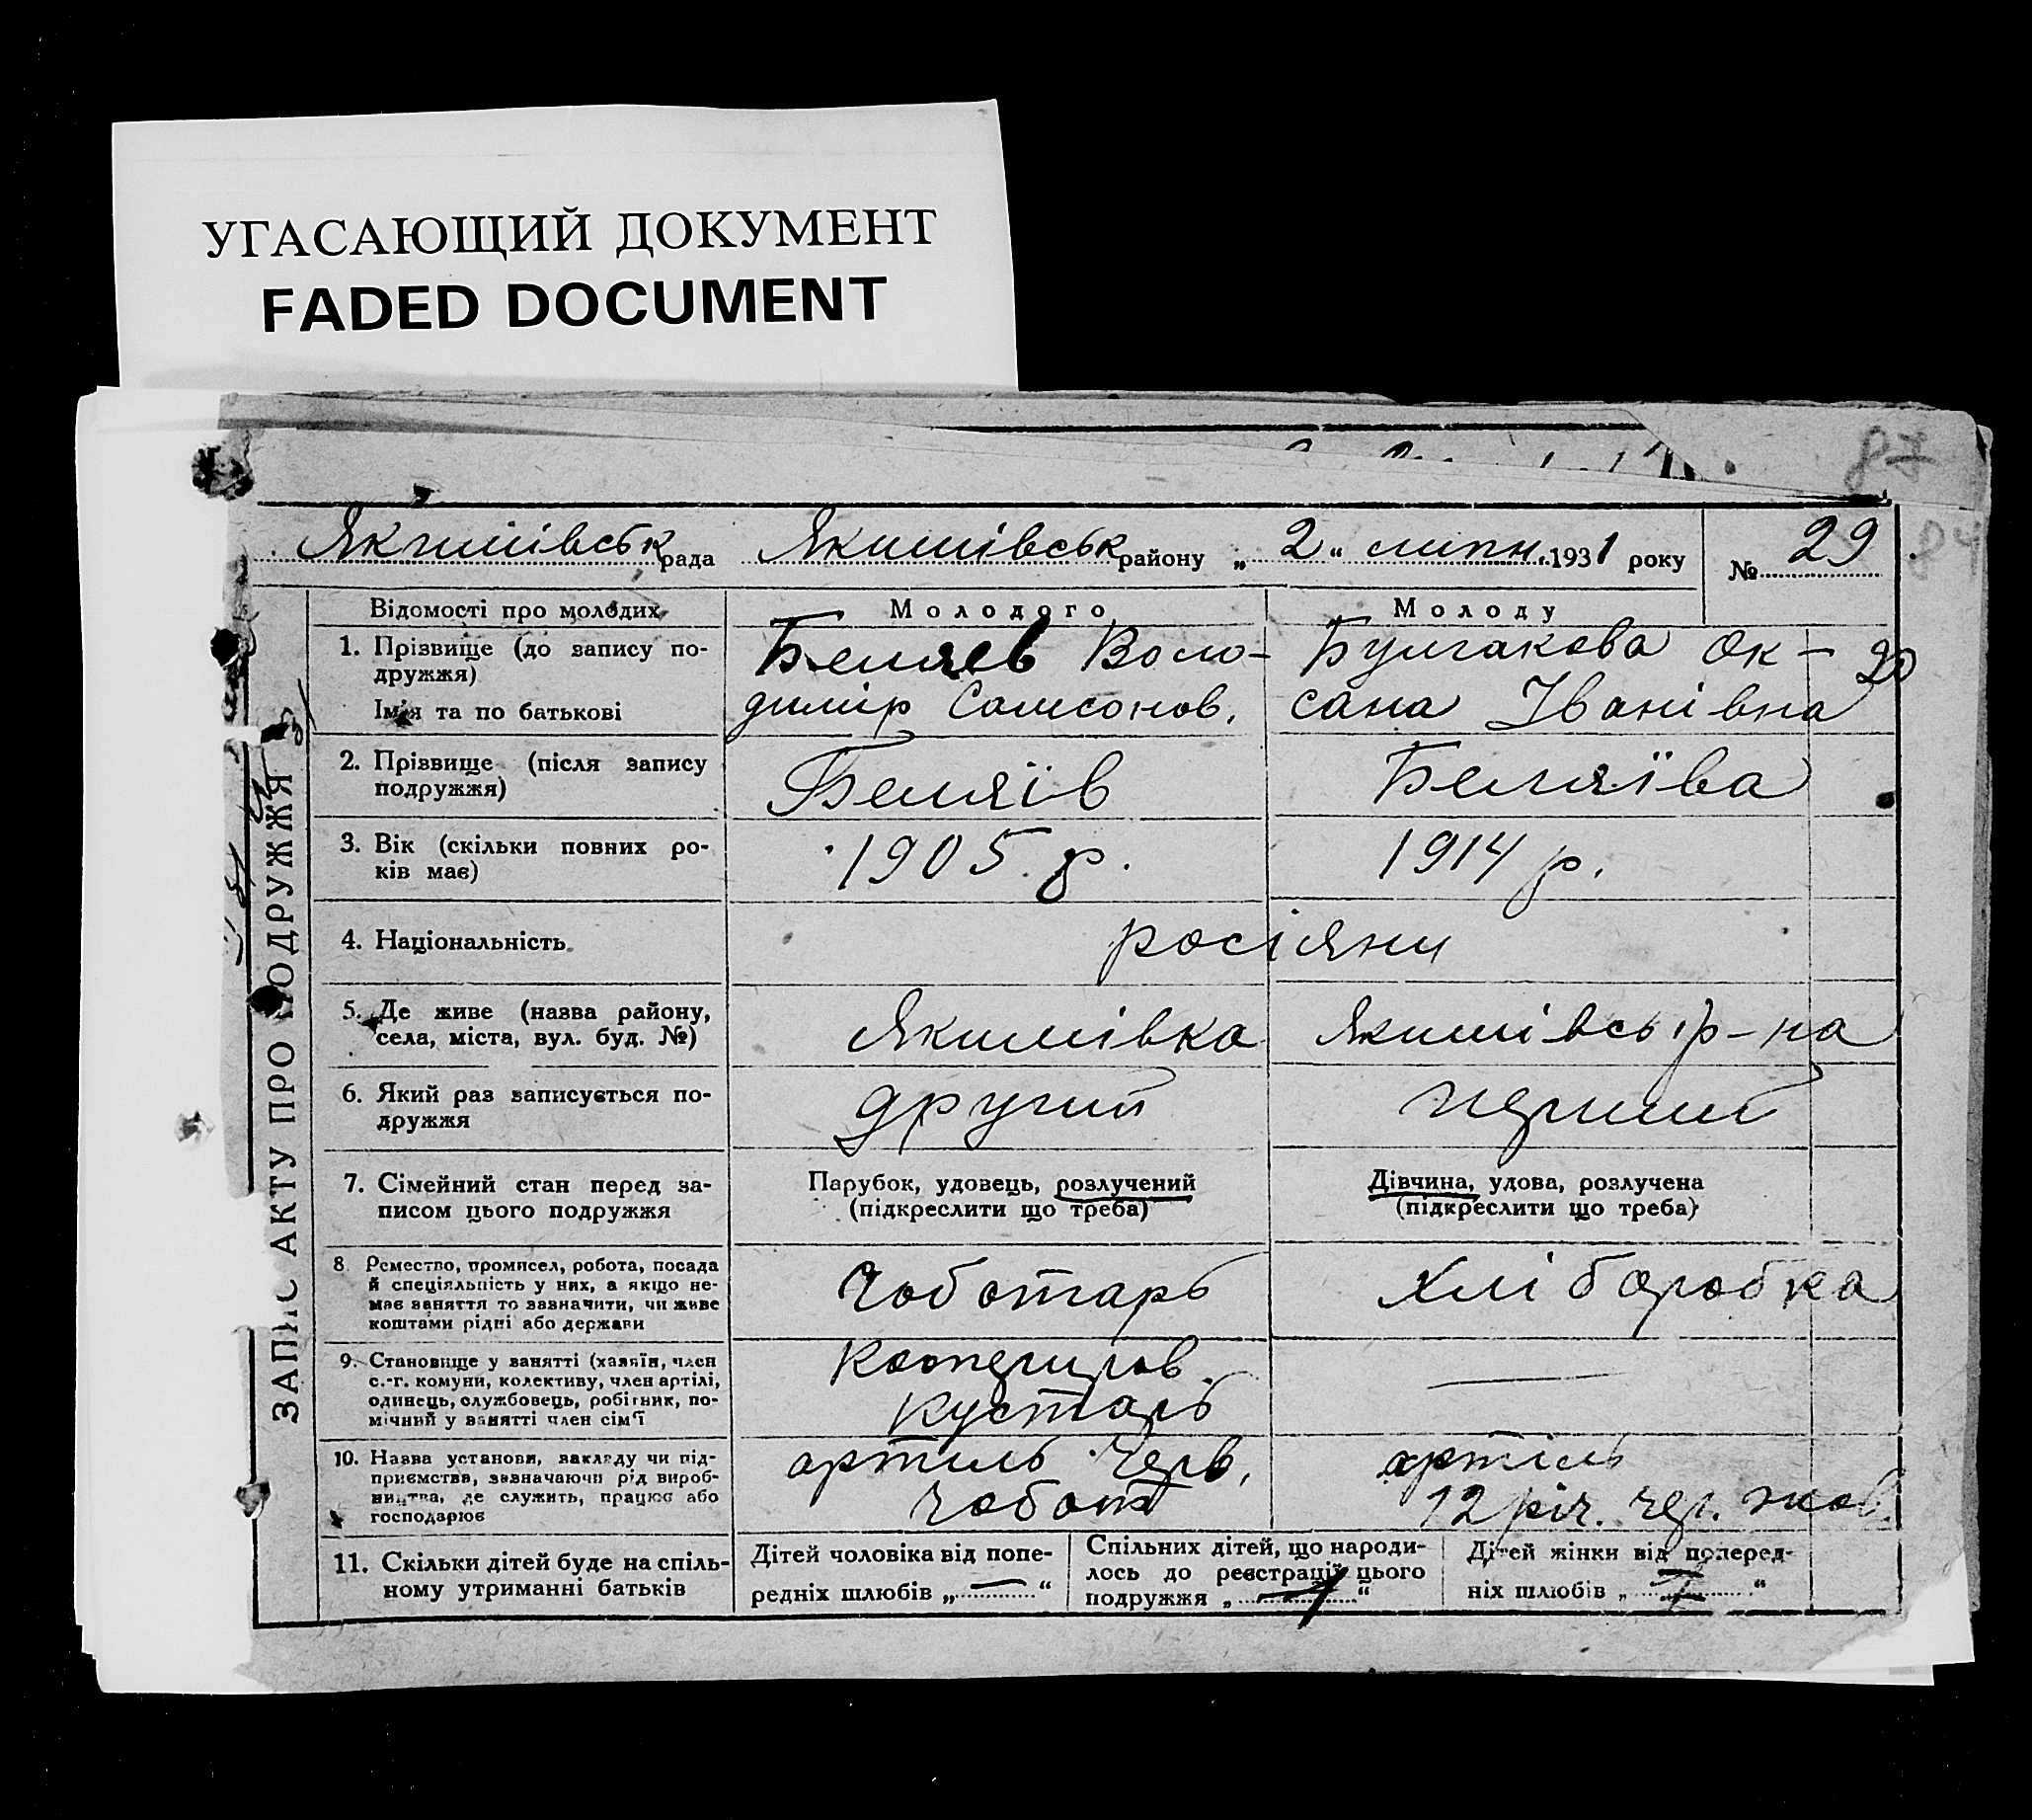 УГАСАЮЩИЙ ДОКУМЕНТ
FADED DOCUMENT
87
84
Якимівськ рада Якимівськ району „ 2 “ липн. 1931 року № 29
ЗАПИС АКТУ ПРО ПОДРУЖЖЯ
Відомості про молодих Молодого Молоду
1. Прізвище (до запису по-
дружжя)
Ім'я та по батькові
Беляев Воло-
димір Самсонов.
Булгакова Ок-
сана Іванівна
20
2. Прізвище (після запису
подружжя)
Беляїв
Беляїва
3. Вік (скільки повних ро-
ків має)
1905 р.
1914 р.
4. Національність
росіяни
5. Де живе (назва району,
села, міста, вул. буд. №)
Якимівка
Якимівсь р-на
6. Який раз записується по-
дружжя
другий
перший
7. Сімейний стан перед за-
писом цього подружжя
Парубок, удовець, розлучений
(підкреслити що треба)
Дівчина, удова, розлучена
(підкреслити що треба)
8. Ремество, промисел, робота, посада
й спеціяльність у них, а якщо не-
має заняття то зазначити, чи живе
коштами рідні або держави
Чоботарь
Хліборобка
9. Становище у занятті (хазяїн, член
с.-г. комуни, колективу, член артілі,
одинець, службовець, робітник, по-
мічний у занятті член сім'ї
Кооперипов.
Кустарь
10. Назва установи, закладу чи під-
приємства, зазначаючи рід вироб-
ництва, де служить, працює або
господарює
артиль Черв.
Чобот
артіль
12 річ. чер. жов.
11. Скільки дітей буде на спіль-
ному утриманні батьків
Дітей чоловіка від попе-
редніх шлюбів „ — “
Спільних дітей, що народи-
лось до реєстрації цього
подружжя „ “
Дітей жінки від поперед-
ніх шлюбів „ “